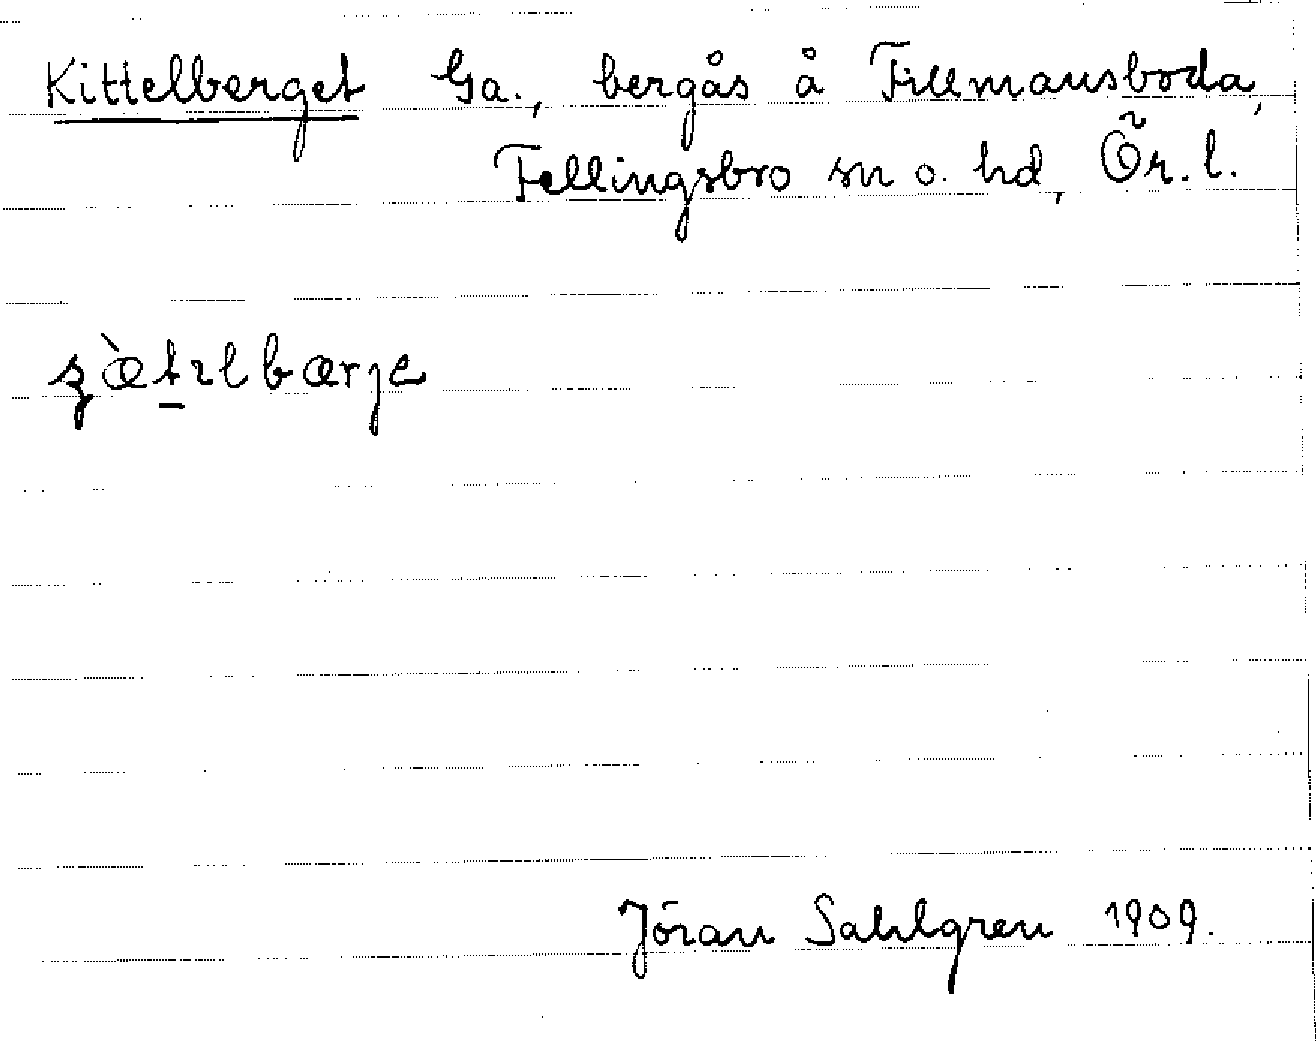 Kittelberget Ga., bergås å Fillmansboda,
Fellingsbro sn o. hd, Ör. l.
Jöran Sahlgren 1909.